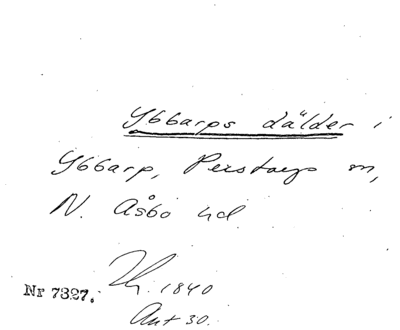 Ybbarps dälder i
Ybbarp, Perstorps sn,
N. Åsbo hd.
1840
Nr 7327.
Ant 30.